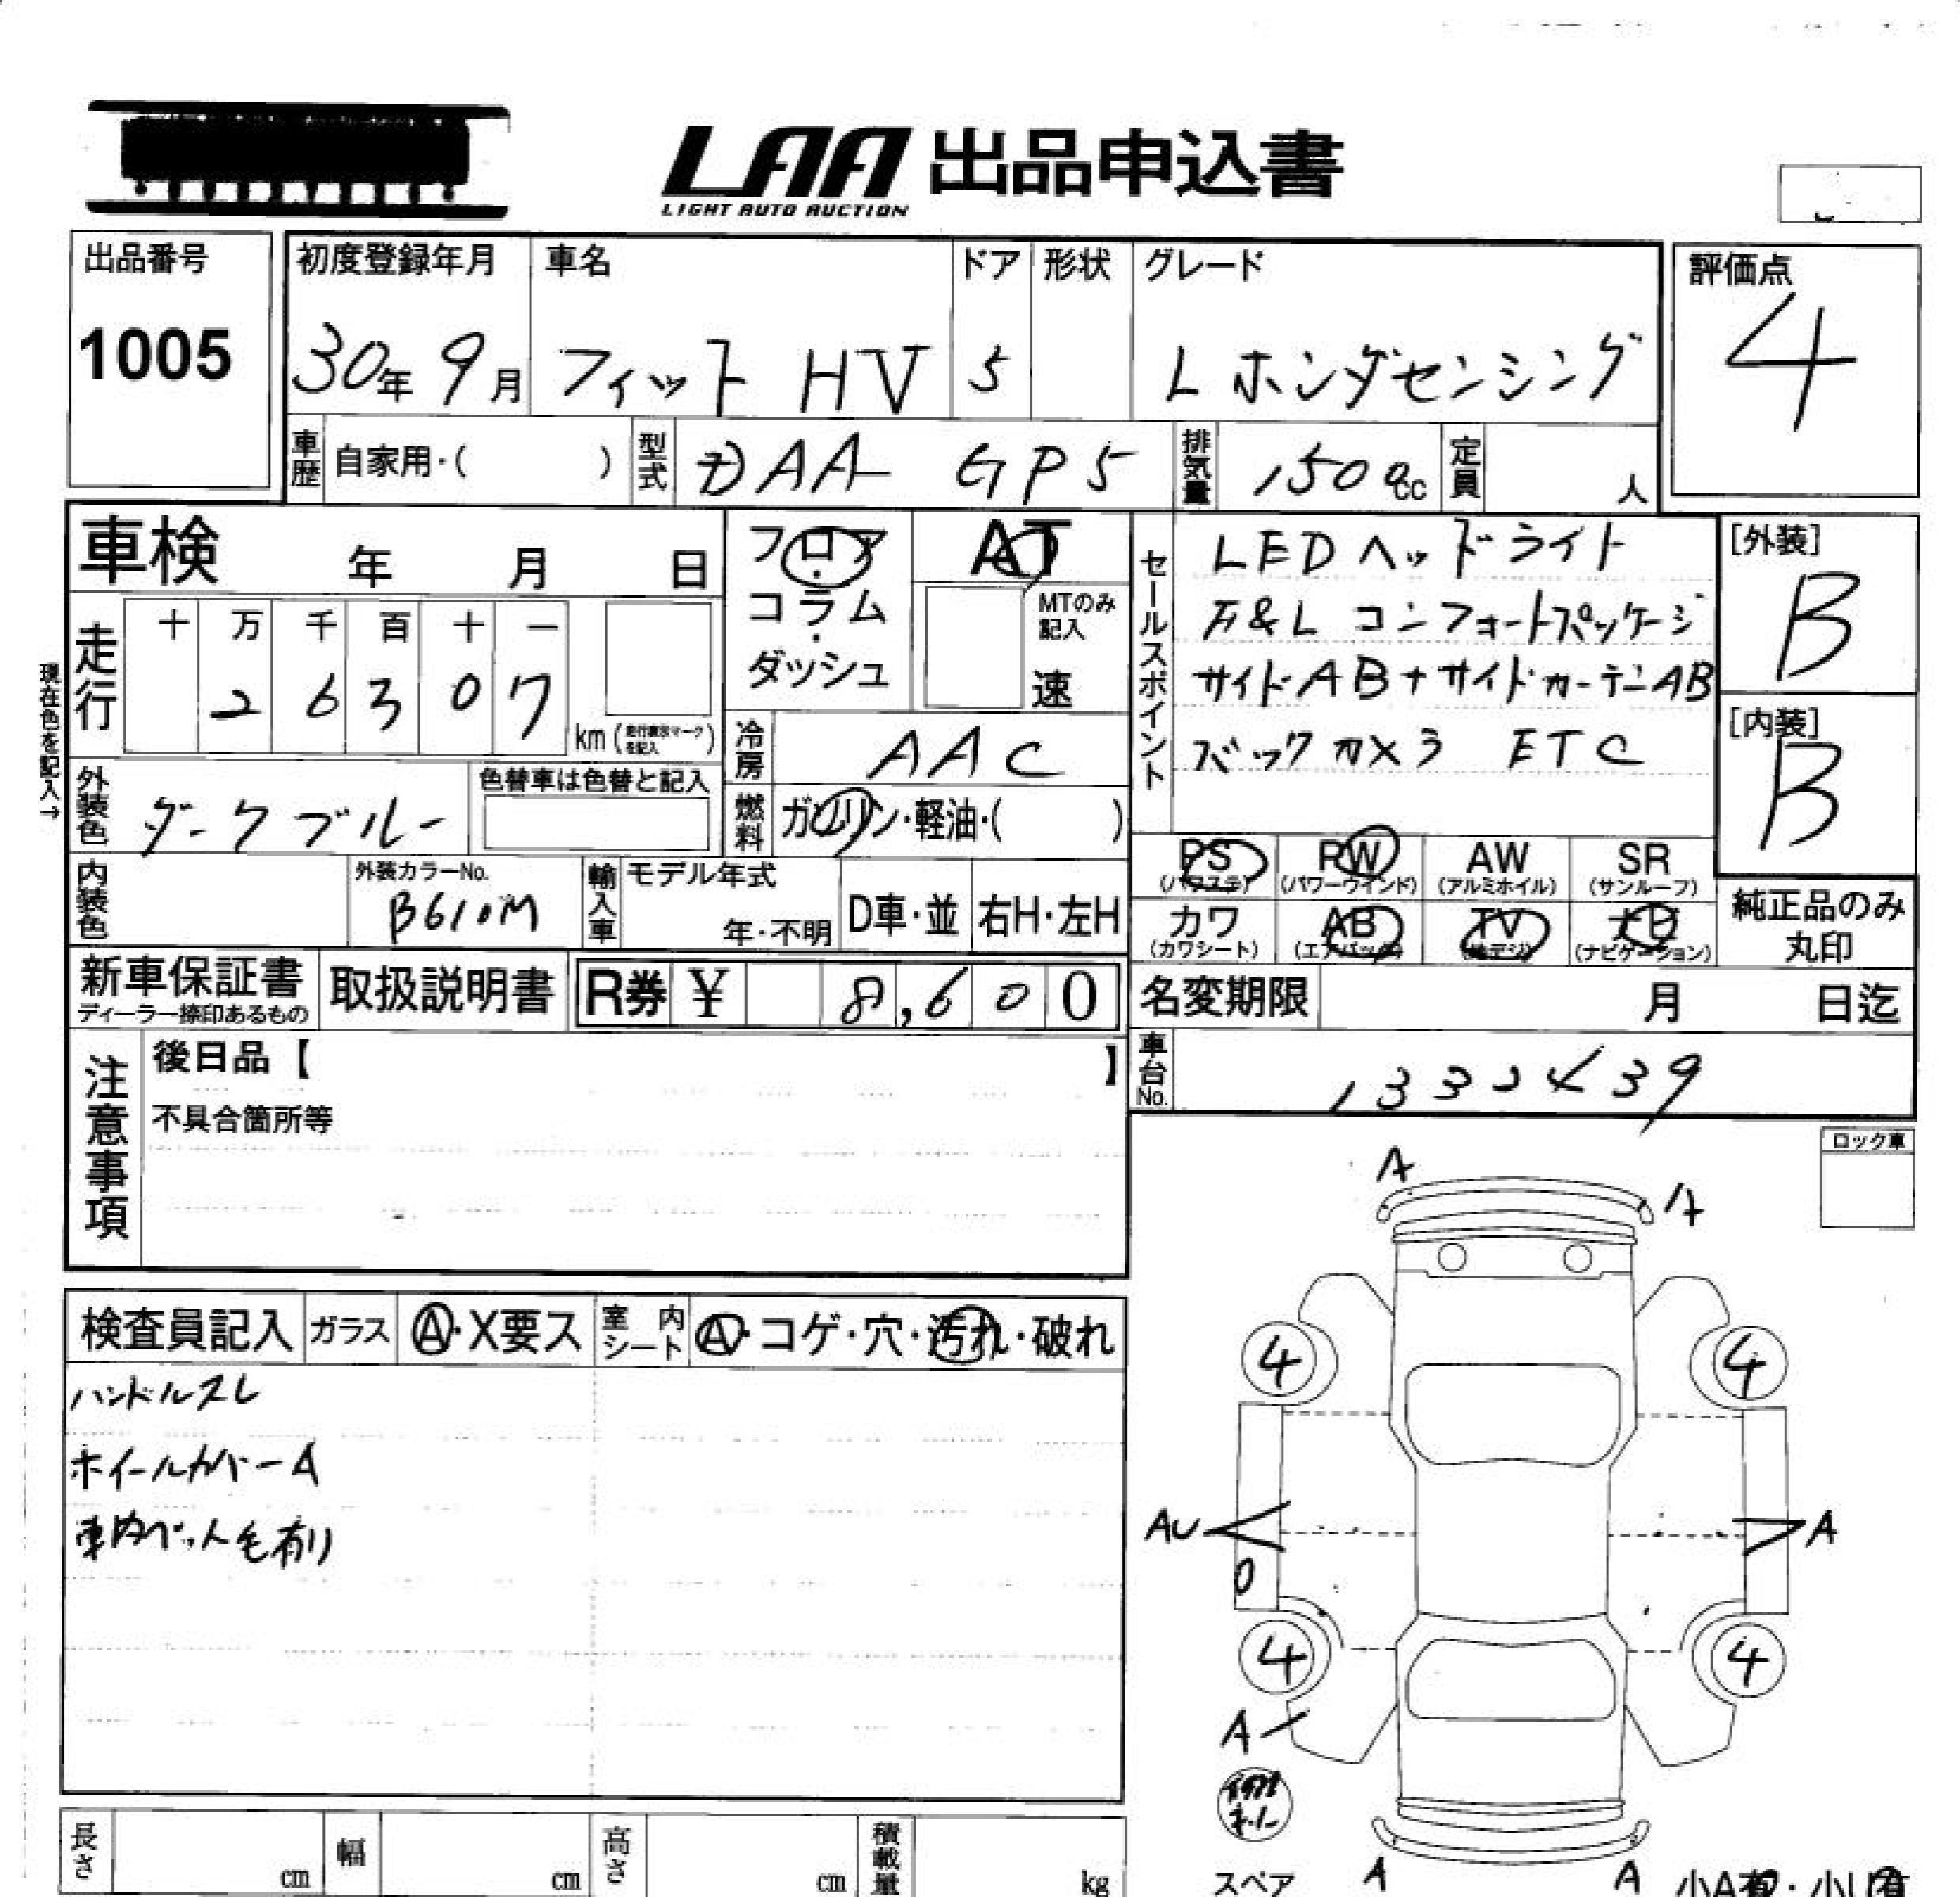 LAA 出品申込書
LIGHT AUTO AUCTION
出品番号
1005
初度登録年月
30年 9月
車名
フィット HV
ドア
5
形状
グレード
L ホンダセンシング
評価点
4
車歴
自家用・( )
型式
DAA GP5
排気量
1500cc
定員
人
車検 年 月 日
フロア・コラム・ダッシュ
AT
MTのみ記入
速
セールスポイント
LEDヘッドライト
F&L コンフォートパッケージ
サイドAB+サイドカーテンAB
バックカメラ ETC
[外装]
B
[内装]
B
現在色を記入→
走行
十 万 千 百 十 一
2 6 3 0 7
km(走行表示マークを記入)
冷房
AAC
外装色
ダークブルー
色替車は色替と記入
燃料
ガソリン・軽油・( )
内装色
外装カラーNo.
B610M
輸入車
モデル年式
年・不明
D車・並
右H・左H
PS
(パワステ)
PW
(パワーウインド)
AW
(アルミホイル)
SR
(サンルーフ)
カワ
(カワシート)
AB
(エアバック)
TV
(地デジ)
ナビ
(ナビゲーション)
純正品のみ
丸印
新車保証書
ディーラー捺印あるもの
取扱説明書
R券 ¥ 8,600
名変期限 月 日迄
注意事項
後日品【 】
不具合箇所等
車台No.
1332439
ロック車
検査員記入
ガラス
A・X要ス
室内シート
A・コゲ・穴・汚れ・破れ
ハンドルスレ
ホイールカバーA
車内ペット毛有り
A
A
4
4
AU
A
4
4
A
スペア
A
A
長さ
cm
幅
cm
高さ
cm
積載量
kg